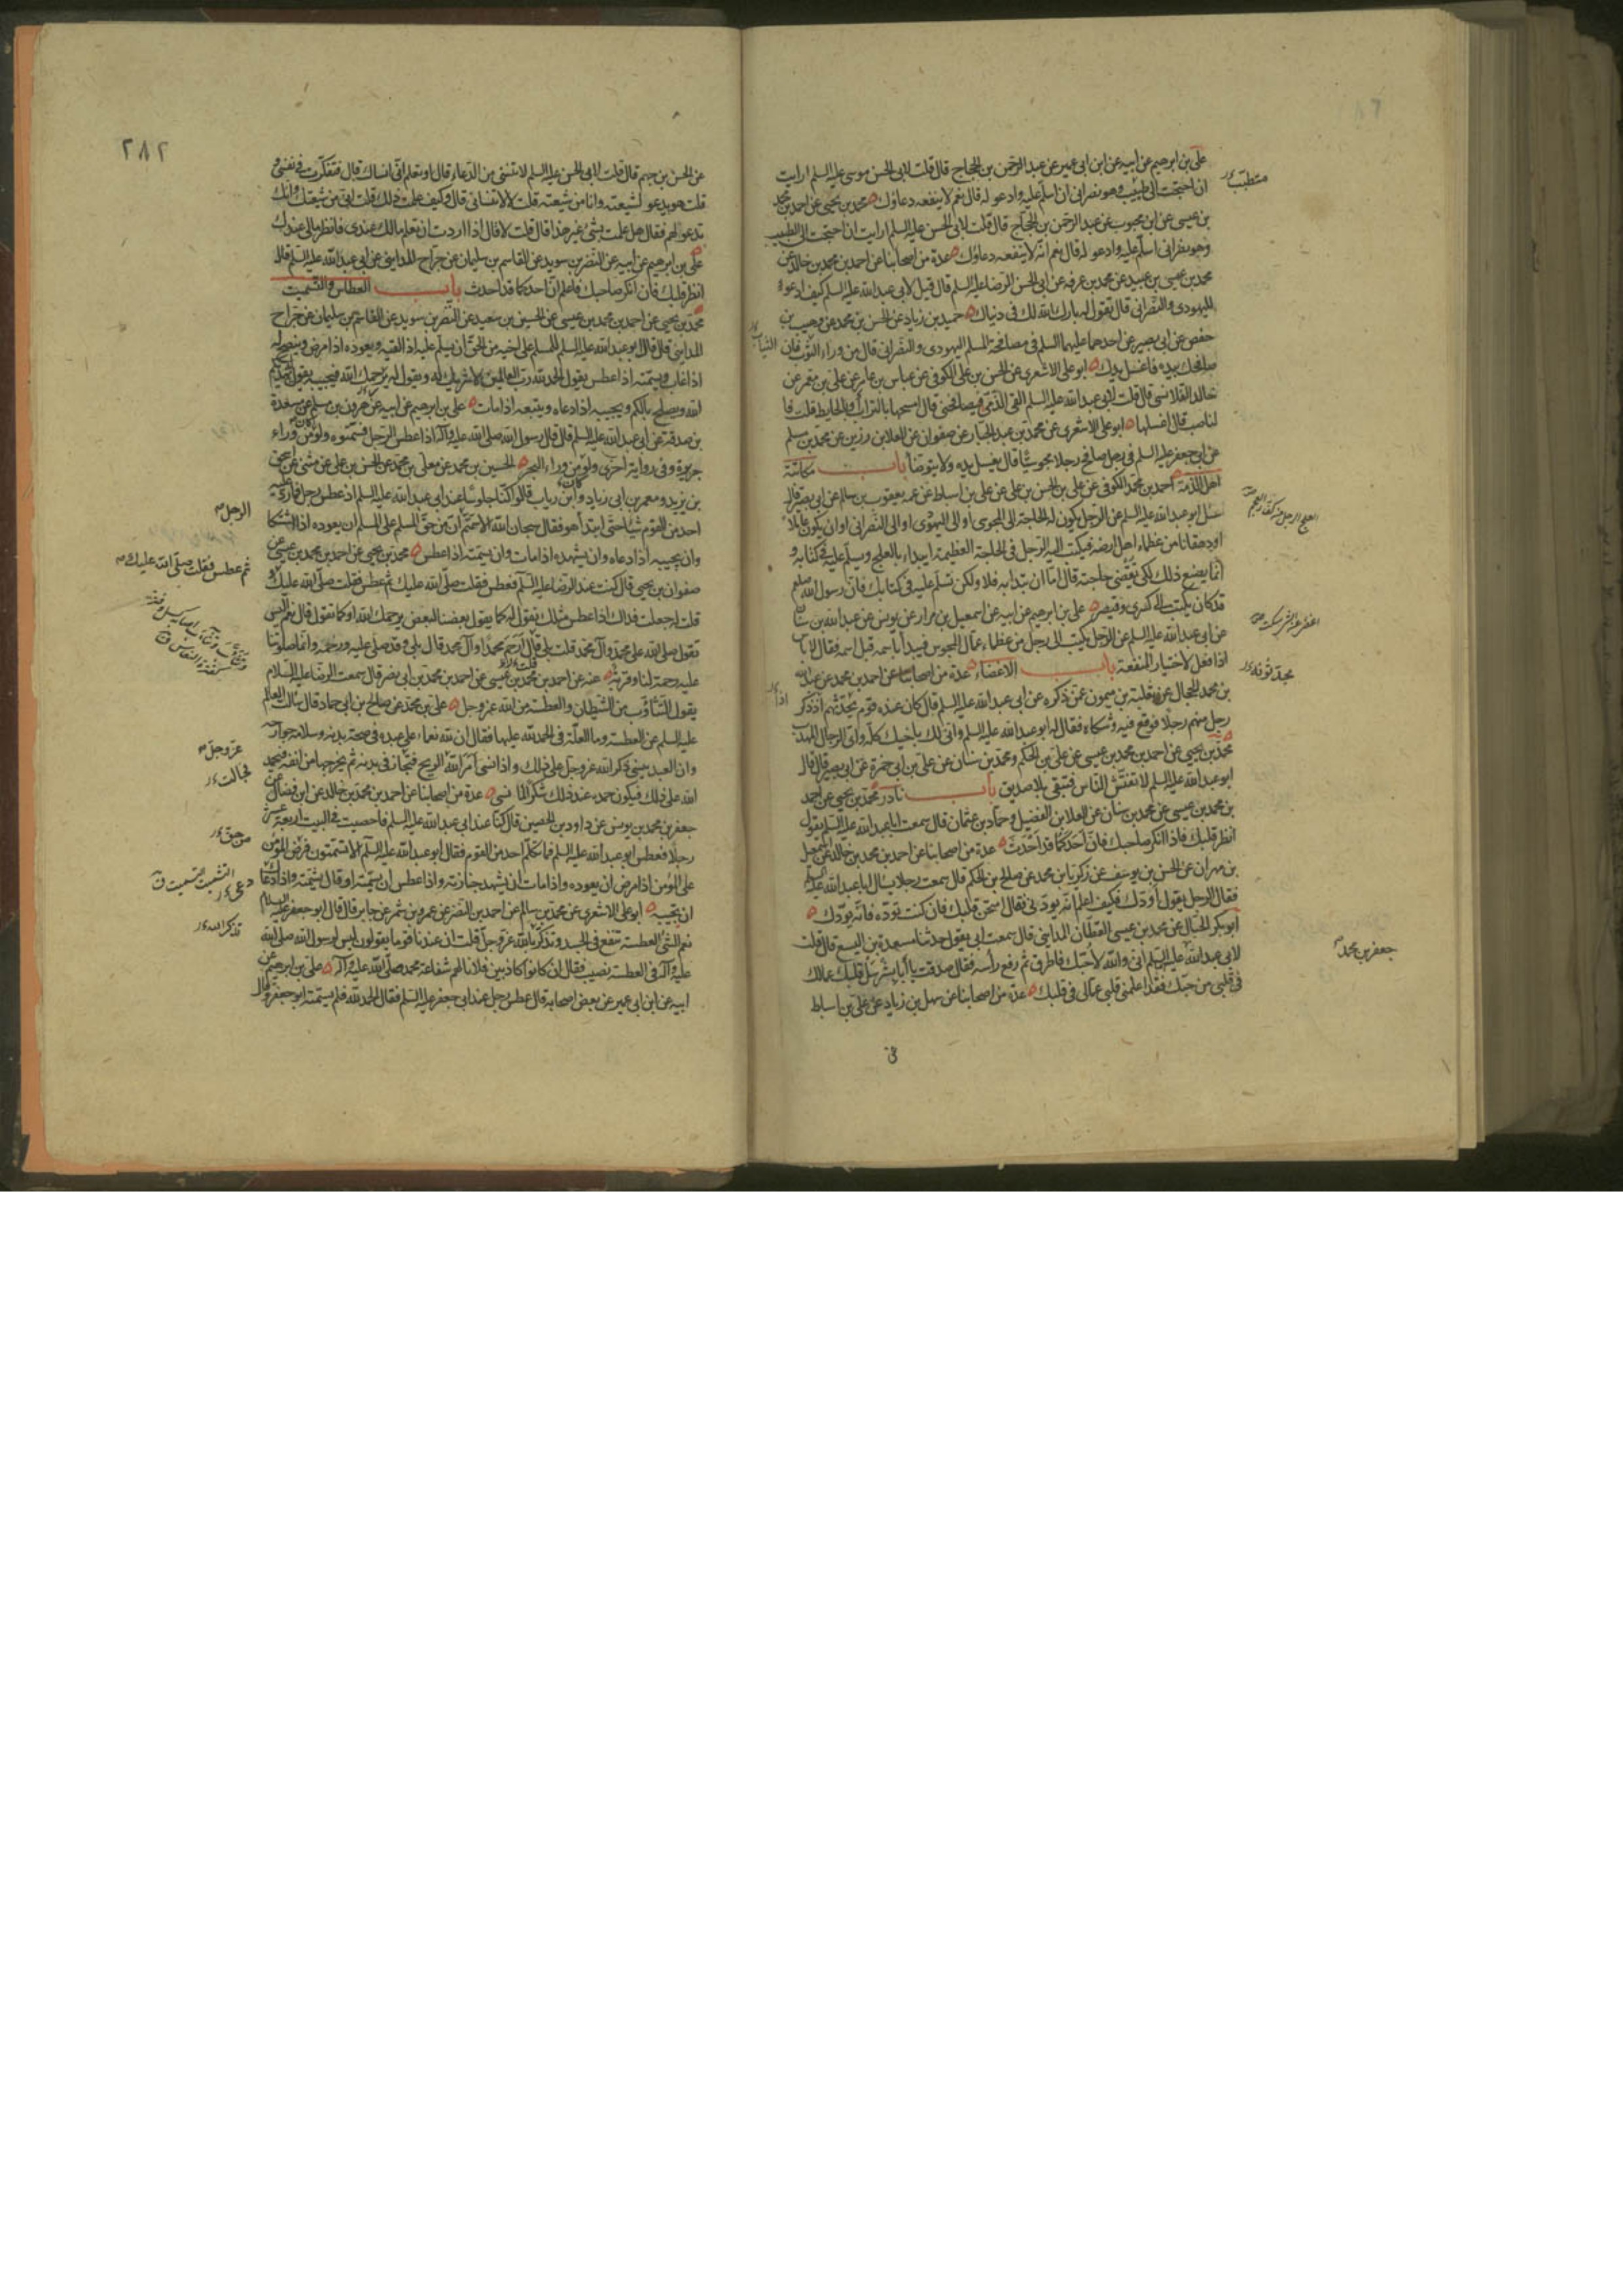 علي بن ابرهيم عن ابيه عن ابن ابي عمير عن عبد الرحمن بن الحجاج قال قلت لابي الحسن موسى عليه السلم ارايت
ان احتجت الى طبيب وهو نصراني ان اسلم عليه وادعو له قال نعم لا ينفعه دعاؤك محمد بن يحيى عن احمد بن محمد
بن عيسى عن ابن محبوب عن عبد الرحمن بن الحجاج قال قلت لابي الحسن عليه السلم ارايت ان احتجت الى الطبيب
وهو نصراني اسلم عليه وادعو له قال نعم انه لا ينفعه دعاؤك عدة من اصحابنا عن احمد بن محمد بن خالد عن
محمد بن عيسى بن عبيد عن محمد بن عرفه عن ابي الحسن الرضا عليه السلم قال قيل لابي عبد الله عليه السلم كيف ادعو
لليهودي والنصراني قال تقول له بارك الله لك في دنياك حميد بن زياد عن الحسن بن محمد عن وهيب بن
حفص عن ابي بصير عن احدهما عليهما السلم في مصافحة المسلم اليهودي والنصراني قال من وراء الثوب فان
صافحك بيده فاغسل يدك ابو علي الاشعري عن الحسن بن علي الكوفي عن عباس بن عامر عن علي بن معمر عن
خالد القلانسي قال قلت لابي عبد الله عليه السلم القى الذمي فيصافحني قال امسحها بالتراب وبالحايط قلت فا
لناصب قال اغسلها ابو علي الاشعري عن محمد بن عبد الجبار عن صفوان عن العلا بن رزين عن محمد بن مسلم
عن ابي جعفر عليه السلم في رجل صافح رجلا مجوسيا قال يغسل يده ولا يتوضأ باب مكاتبة
اهل الذمة احمد بن محمد الكوفي عن علي بن الحسن بن علي عن علي بن اسباط عن عمه يعقوب بن سالم عن ابي بصير قال
سئل ابو عبد الله عليه السلم عن الرجل يكون له الحاجة الى المجوسي او الى اليهودي او الى النصراني او ان يكون عاملا
او دهقانا من عظماء اهل ارضه فيكتب اليه الرجل في الحاجة العظيمة ايبداء بالعلج ويسلم عليه في كتابه و
انما يصنع ذلك لكي تقضى حاجته قال اما ان تبدا به فلا ولكن تسلم عليه في كتابك فان رسول الله صلعم
قد كان يكتب الى كسرى وقيصر علي بن ابرهيم عن ابيه عن اسمعيل بن مرار عن يونس عن عبد الله بن سنان
عن ابي عبد الله عليه السلم عن الرجل يكتب الى رجل من عظماء عمال المجوس فيبدأ باسمه قبل اسمه فقال لا باس
اذا فعل لاختيار المنفعة باب الاغضاء عدة من اصحابنا عن احمد بن محمد عن عبد الله
بن محمد الحجال عن ثعلبة بن ميمون عمن ذكره عن ابي عبد الله عليه السلم قال كان عنده قوم يحدثهم اذ ذكر
رجل منهم رجلا فوقع فيه وشكاه فقال له ابو عبد الله عليه السلم وانى لك باخيك كله واي الرجال المهذب
محمد بن يحيى عن احمد بن محمد بن عيسى عن علي بن الحكم ومحمد بن سنان عن علي بن ابي حمزة عن ابي بصير قال قال
ابو عبد الله عليه السلم لا تفتش الناس فتبقى بلا صديق باب نادر محمد بن يحيى عن احمد
بن محمد بن عيسى عن محمد بن سنان عن العلا بن الفضيل وحماد بن عثمان قال سمعت ابا عبد الله عليه السلم يقول
انظر قلبك فاذا انكر صاحبك فان احدكما قد احدث عدة من اصحابنا عن احمد بن محمد بن خالد عن اسمعيل
بن مهران عن الحسن بن يوسف عن زكريا بن محمد عن صالح بن الحكم قال سمعت رجلا يسال ابا عبد الله عليه السلم
فقال الرجل يقول اودك فكيف اعلم انه يودني فقال امتحن قلبك فان كنت توده فانه يودك
ابو بكر الحبال عن محمد بن عيسى القطان المدايني قال سمعت ابي يقول حدثنا مسعدة بن اليسع قال قلت
لابي عبد الله عليه السلم اني والله لاحبك فاطرق ثم رفع رأسه فقال صدقت يا ابا بشر سل قلبك عما لك
في قلبي من حبك فقد اعلمني قلبي عما لي في قلبك عدة من اصحابنا عن سهل بن زياد عن علي بن اسباط
متطبب
الثياب
اذا
جعفر بن محمد
٢٨٢
عن الحسن بن جهم قال قلت لابي الحسن عليه السلم لا تنسني من الدعاء قال او تعلم اني انساك قال فتفكرت في نفسي و
قلت هو يدعو لشيعته وانا من شيعته قلت لا لا تنساني قال وكيف علمت ذلك قلت اني من شيعتك وانك
تدعو لهم فقال هل علمت بشئ غير هذا قال قلت لا قال اذا اردت ان تعلم ما لك عندي فانظر مالي عندك
علي بن ابرهيم عن ابيه عن النضر بن سويد عن القاسم بن سليمان عن جراح المدايني عن ابي عبد الله عليه السلم قال
انظر قلبك فان انكر صاحبك فاعلم ان احدكما قد احدث باب العطاس والتسميت
محمد بن يحيى عن احمد بن محمد بن عيسى عن الحسين بن سعيد عن النضر بن سويد عن القاسم بن سليمان عن جراح
المدايني قال قال ابو عبد الله عليه السلم للمسلم على اخيه من الحق ان يسلم عليه اذا لقيه ويعوده اذا مرض وينصح له
اذا غاب ويسمته اذا عطس يقول الحمد لله رب العالمين لا شريك له ويقول له يرحمك الله فيجيبه يقول يهديكم
الله ويصلح بالكم ويجيبه اذا دعاه ويتبعه اذا مات علي بن ابرهيم عن ابيه عن هرون بن مسلم عن مسعدة
بن صدقة عن ابي عبد الله عليه السلم قال قال رسول الله صلى الله عليه وآله اذا عطس الرجل فسمتوه ولو من وراء
جزيرة وفي رواية اخرى ولو من وراء البحر الحسين بن محمد عن معلى بن محمد عن الحسن بن علي عن مثنى عن اسحق
بن يزيد ومعمر بن ابي زياد وابن رياب قالوا كنا جلوسا عند ابي عبد الله عليه السلم اذ عطس رجل فما رد عليه
احد من القوم شيئا حتى ابتدأ هو فقال سبحان الله الا سمتم ان من حق المسلم على المسلم ان يعوده اذا اشتكا
وان يجيبه اذا دعاه وان يشهده اذا مات وان يسمته اذا عطس محمد بن يحيى عن احمد بن محمد بن عيسى عن
صفوان بن يحيى قال كنت عند الرضا عليه السلم فعطس فقلت صلى الله عليك ثم عطس فقلت صلى الله عليك و
قلت له جعلت فداك اذا عطس مثلك نقول له كما يقول بعضنا لبعض يرحمك الله او كما نقول قال نعم اليس
تقول صلى الله على محمد وآل محمد قلت بلى قال ارحم محمدا وآل محمد قال بلى وقد صلى عليه ورحمه وانما صلوتنا
عليه رحمة لنا وقربة عنه عن احمد بن محمد بن عيسى عن احمد بن محمد بن ابي نصر قال سمعت الرضا عليه السلام
يقول التثاؤب من الشيطان والعطسة من الله عز وجل علي بن محمد عن صالح بن ابي حماد قال سالت العالم
عليه السلم عن العطسة وما العلة في الحمد لله عليها فقال ان لله نعماء على عبده في صحة بدنه وسلامة جوارحه
وان العبد ينسى ذكر الله عز وجل على ذلك واذا نسي امر الله الريح فتجاز في بدنه ثم يخرجها من انفه فيحمد
الله على ذلك فيكون حمده عند ذلك شكرا لما نسي عدة من اصحابنا عن احمد بن محمد بن خالد عن ابن فضال عن
جعفر بن محمد بن يونس عن داود بن الحصين قال كنا عند ابي عبد الله عليه السلم فاحصيت في البيت اربعة عشر
رجلا فعطس ابو عبد الله عليه السلم فما تكلم احد من القوم فقال ابو عبد الله عليه السلم الا تسمتون فرض المؤمن
على المؤمن اذا مرض ان يعوده واذا مات ان يشهد جنازته واذا عطس ان يسمته او قال يشمته واذا دعاه
ان يجيبه ابو علي الاشعري عن محمد بن سالم عن احمد بن النضر عن عمرو بن شمر عن جابر قال قال ابو جعفر عليه السلام
نعم الشئ العطسة تنفع في الجسد وتذكر بالله عز وجل قلت ان عندنا قوما يقولون ليس لرسول الله صلى الله
عليه وآله في العطسة نصيب فقال ان كانوا كاذبين فلا نالهم شفاعة محمد صلى الله عليه وآله علي بن ابرهيم عن
ابيه عن ابن ابي عمير عن بعض اصحابه قال عطس رجل عند ابي جعفر عليه السلم فقال الحمد لله فلم يسمته ابو جعفر وقال
الرجل
ثم عطس فقلت صلى الله عليك
عز وجل
فجالت
من حق
دعي
تذكر الله